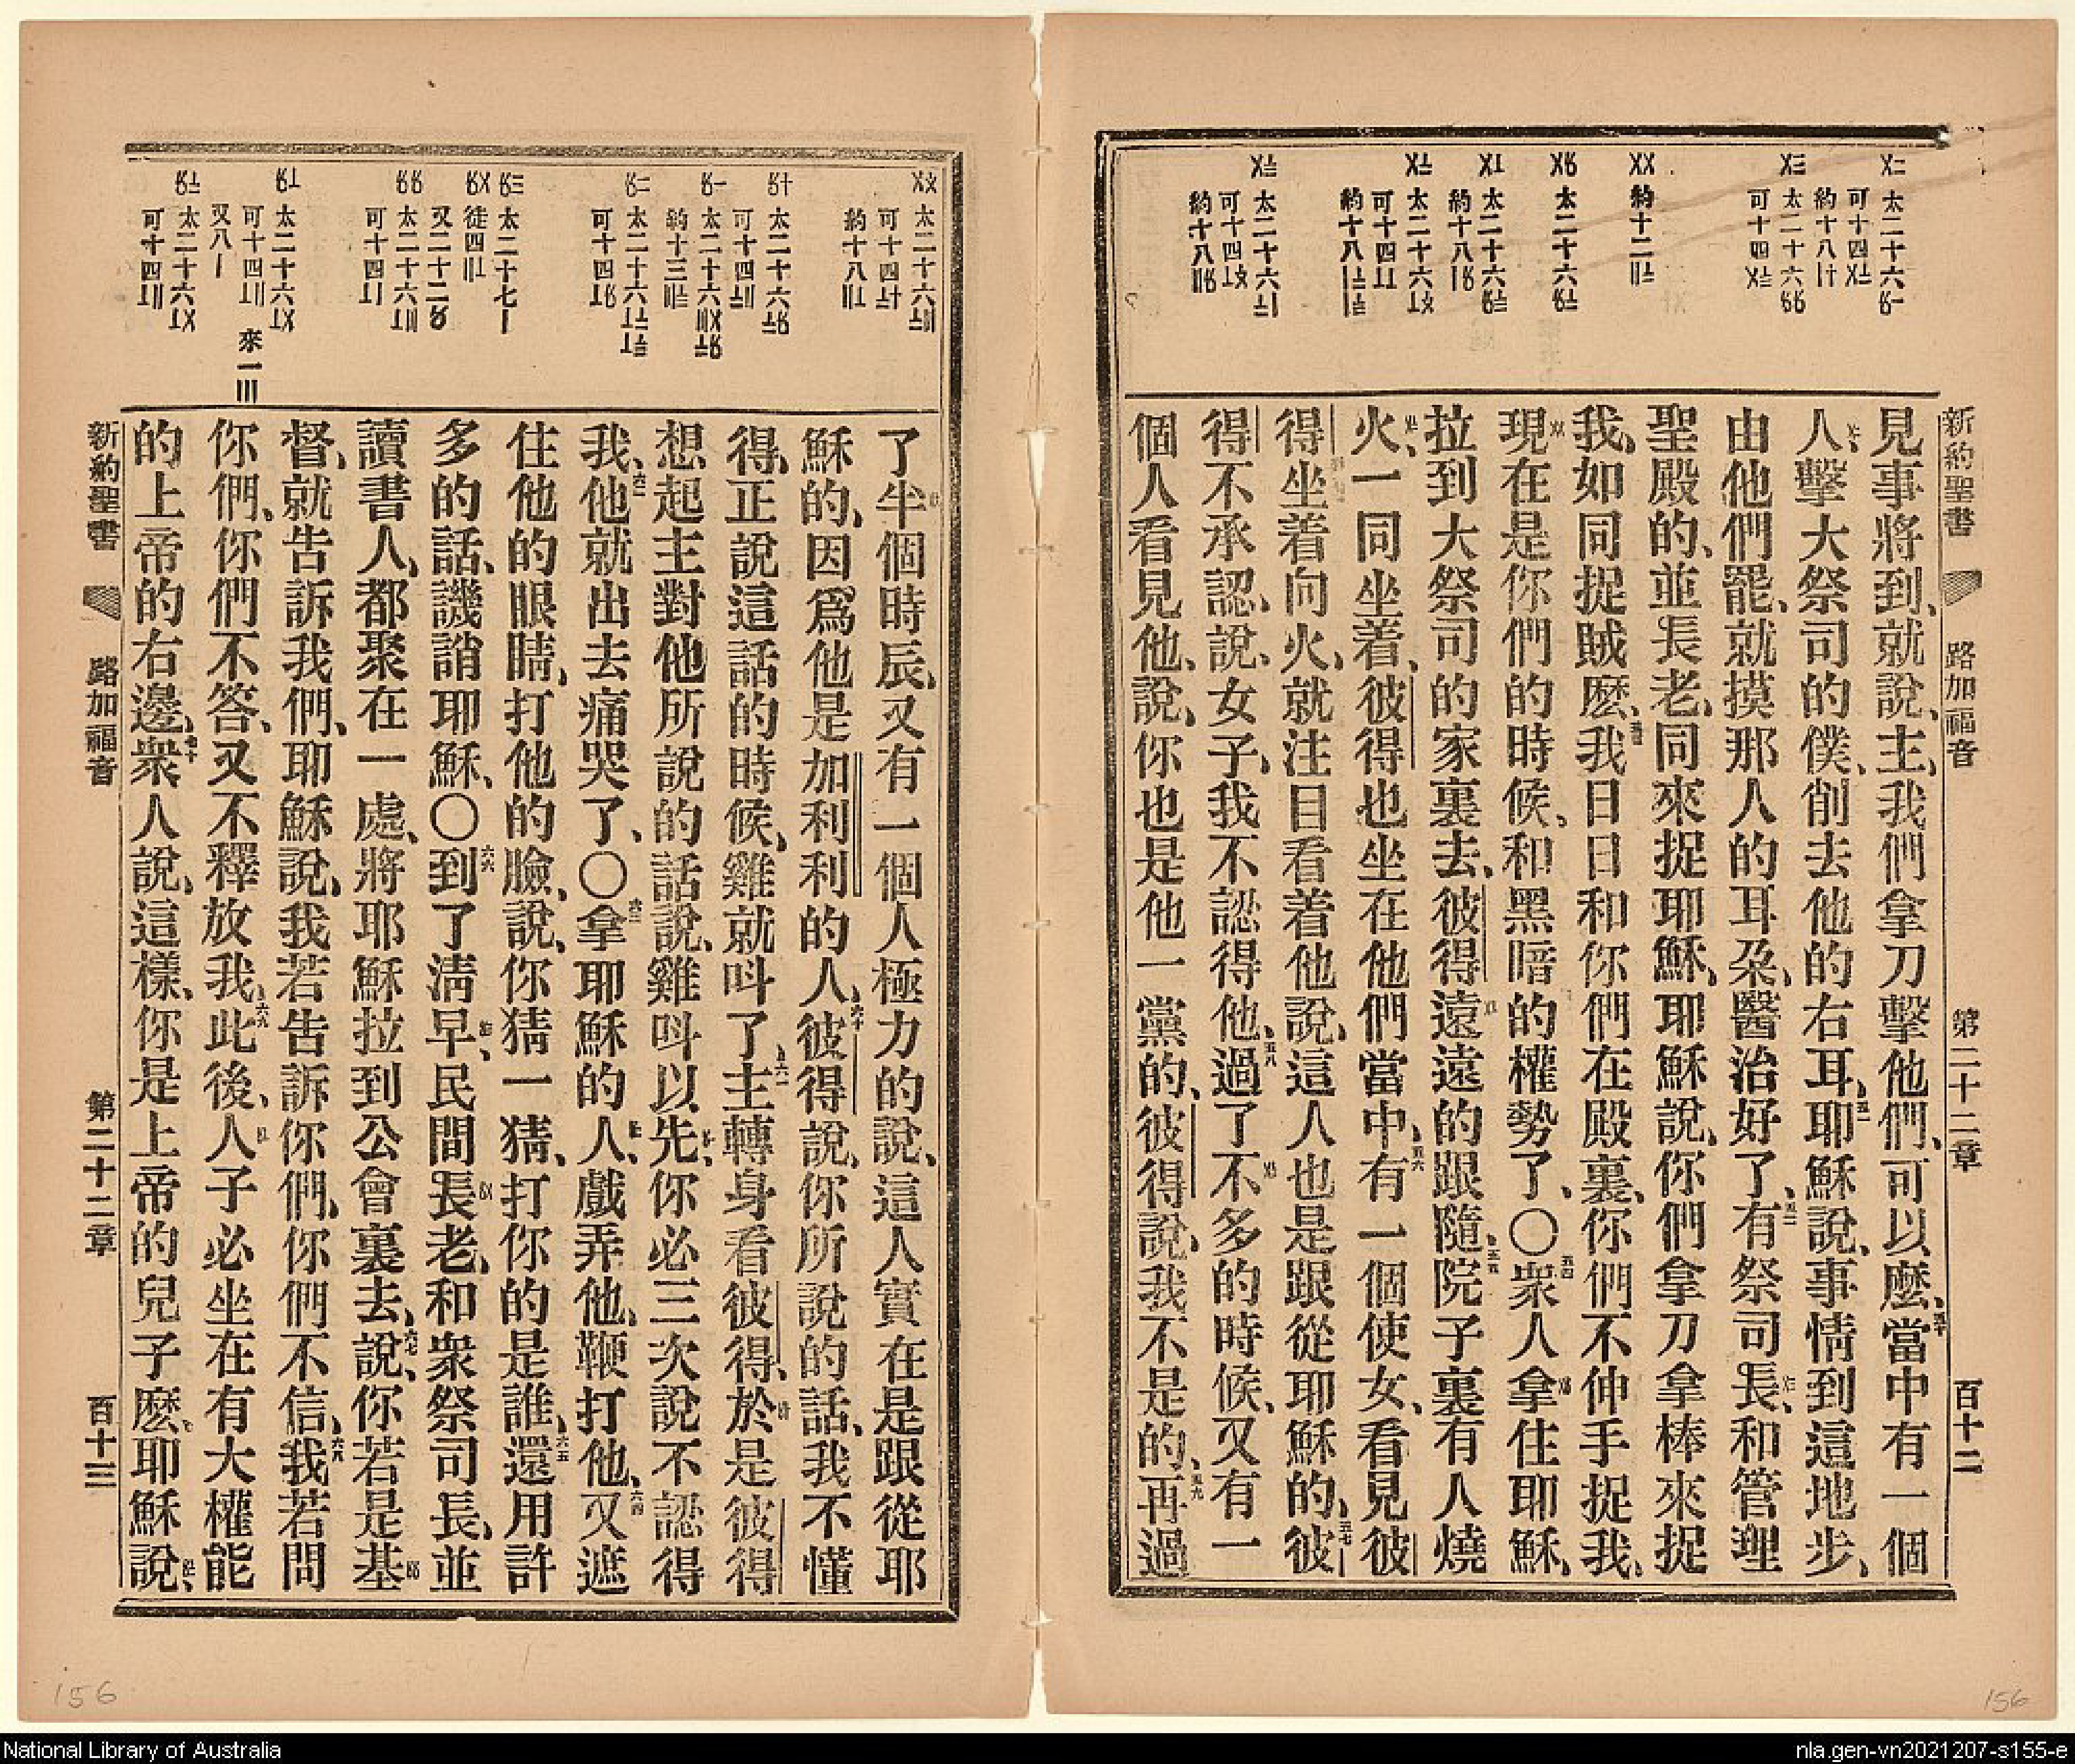 新約聖書 路加福音 第二十二章 百十二
見事將到、就說、主、我們拿刀擊他們、可以麼、五十當中有一個
人、擊大祭司的僕、削去他的右耳、五一耶穌說、事情到這地步、
由他們罷、就摸那人的耳朶、醫治好了、五二有祭司長、和管理
聖殿的、並長老、同來捉耶穌、耶穌說、你們拿刀拿棒來捉
我、如同捉賊麽、五三我日日和你們在殿裏、你們不伸手捉我、
現在是你們的時候、和黑暗的權勢了、〇五四衆人拿住耶穌、
拉到大祭司的家裏去、彼得遠遠的跟隨、五五院子裏有人燒
火、一同坐着、彼得也坐在他們當中、五六有一個使女、看見彼
得坐着向火、就注目看着他說、這人也是跟從耶穌的、五七彼
得不承認、說、女子、我不認得他、五八過了不多的時候、又有一
個人看見他、說、你也是他一黨的、彼得說、我不是的、五九再過
了半個時辰、又有一個人極力的說、這人實在是跟從耶
穌的、因爲他是加利利的人、六十彼得說、你所說的話、我不懂
得、正說這話的時候、雞就呌了、六一主轉身看彼得、於是彼得
想起主對他所說的話說、雞呌以先、你必三次說不認得
我、六二他就出去痛哭了、〇六三拿耶穌的人、戲弄他、鞭打他、六四又遮
住他的眼睛、打他的臉、說、你猜一猜、打你的是誰、六五還用許
多的話、譏誚耶穌、〇六六到了淸早、民間長老、和衆祭司長、並
讀書人、都聚在一處、將耶穌拉到公會裏去、六七說、你若是基
督、就告訴我們、耶穌說、我若告訴你們、你們不信、六八我若問
你們、你們不答、又不釋放我、六九此後、人子必坐在有大權能
的上帝的右邊、七十衆人說、這樣、你是上帝的兒子麽、耶穌說、
新約聖書 路加福音 第二十二章 百十三
156
156
National Library of Australia
nla.gen-vn2021207-s155-e